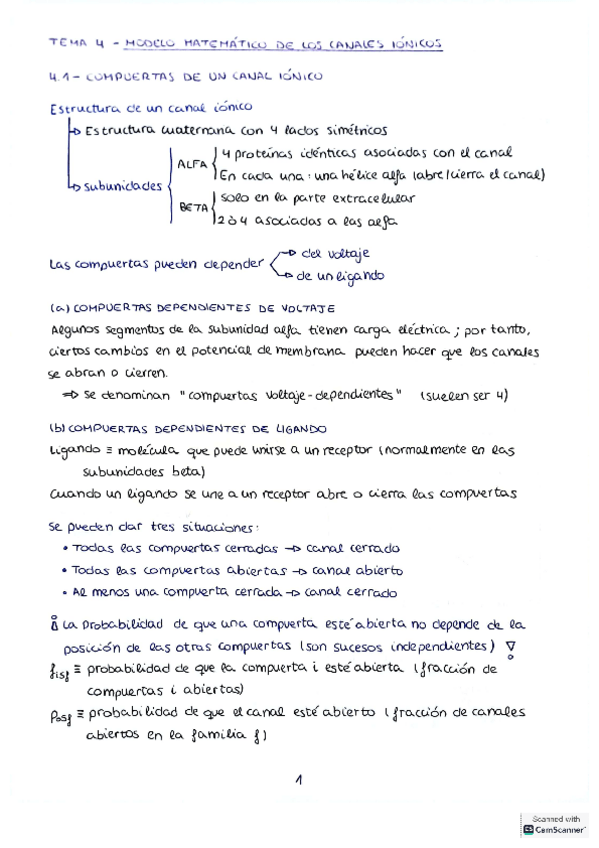 TEMA 4 - MODELO MATEMÁTICO DE LOS CANALES IÓNICOS
4.1 - COMPUERTAS DE UN CANAL IÓNICO
Estructura de un canal iónico
Estructura cuaternaria con 4 lados simétricos
subunidades
ALFA
4 proteínas idénticas asociadas con el canal
En cada una: una hélice alfa (abre/cierra el canal)
BETA
Solo en la parte extracelular
2 ò 4 asociadas a las alfa
Las compuertas pueden depender
del voltaje
de un ligando
(a) COMPUERTAS DEPENDIENTES DE VOLTAJE
Algunos segmentos de la subunidad alfa tienen carga eléctrica; por tanto,
ciertos cambios en el potencial de membrana pueden hacer que los canales
se abran o cierren.
⇒ Se denominan "compuertas voltaje-dependientes" (suelen ser 4)
(b) COMPUERTAS DEPENDIENTES DE LIGANDO
Ligando ≡ molécula que puede unirse a un receptor (normalmente en las
subunidades beta)
Cuando un ligando se une a un receptor abre o cierra las compuertas
Se pueden dar tres situaciones:
• Todas las compuertas cerradas → canal cerrado
• Todas las compuertas abiertas → canal abierto
• Al menos una compuerta cerrada → canal cerrado
¡ La probabilidad de que una compuerta esté abierta no depende de la
posición de las otras compuertas (son sucesos independientes) !
fisf ≡ probabilidad de que la compuerta i esté abierta (fracción de
compuertas i abiertas)
Posf ≡ probabilidad de que el canal esté abierto (fracción de canales
abiertos en la familia f)
1
Scanned with
CS CamScanner